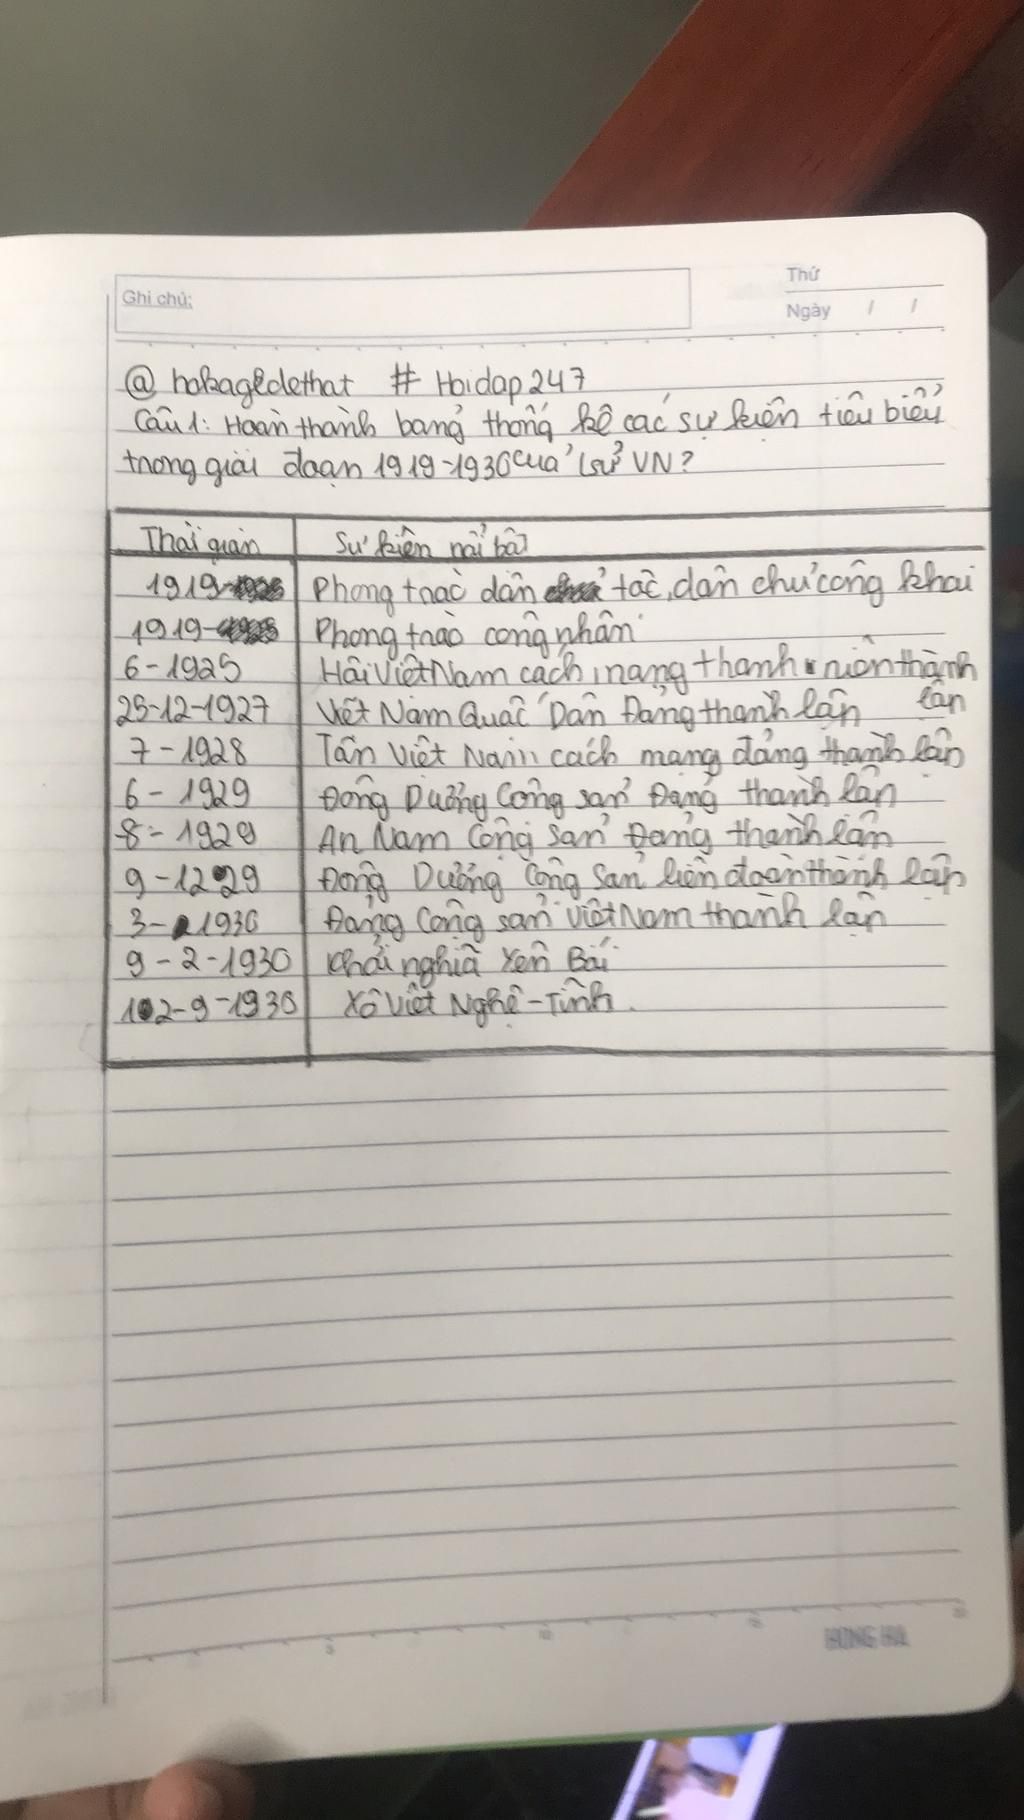 Ghi chú:
Thứ
Ngày / /
@ hokagedethat # Hoidap247
Câu 1: Hoàn thành bảng thống kê các sự kiện tiêu biểu
trong giai đoạn 1919-1930 của lsử VN?
Thời gian Sự kiện nổi bật
1919 Phong trào dân tộc, dân chủ công khai
1919 Phong trào công nhân
6-1925 Hội Việt Nam cách mạng thanh niên thành lập
25-12-1927 Việt Nam Quốc Dân Đảng thành lập
7-1928 Tân Việt Nam cách mạng đảng thành lập
6-1929 Đông Dương Cộng sản Đảng thành lập
8-1929 An Nam Cộng sản Đảng thành lập
9-1229 Đông Dương Cộng Sản liên đoàn thành lập
3-1930 Đảng Cộng sản Việt Nam thành lập
9-2-1930 Khởi nghĩa Yên Bái
12-9-1930 Xô Viết Nghệ-Tĩnh.
5
10
HONG HA